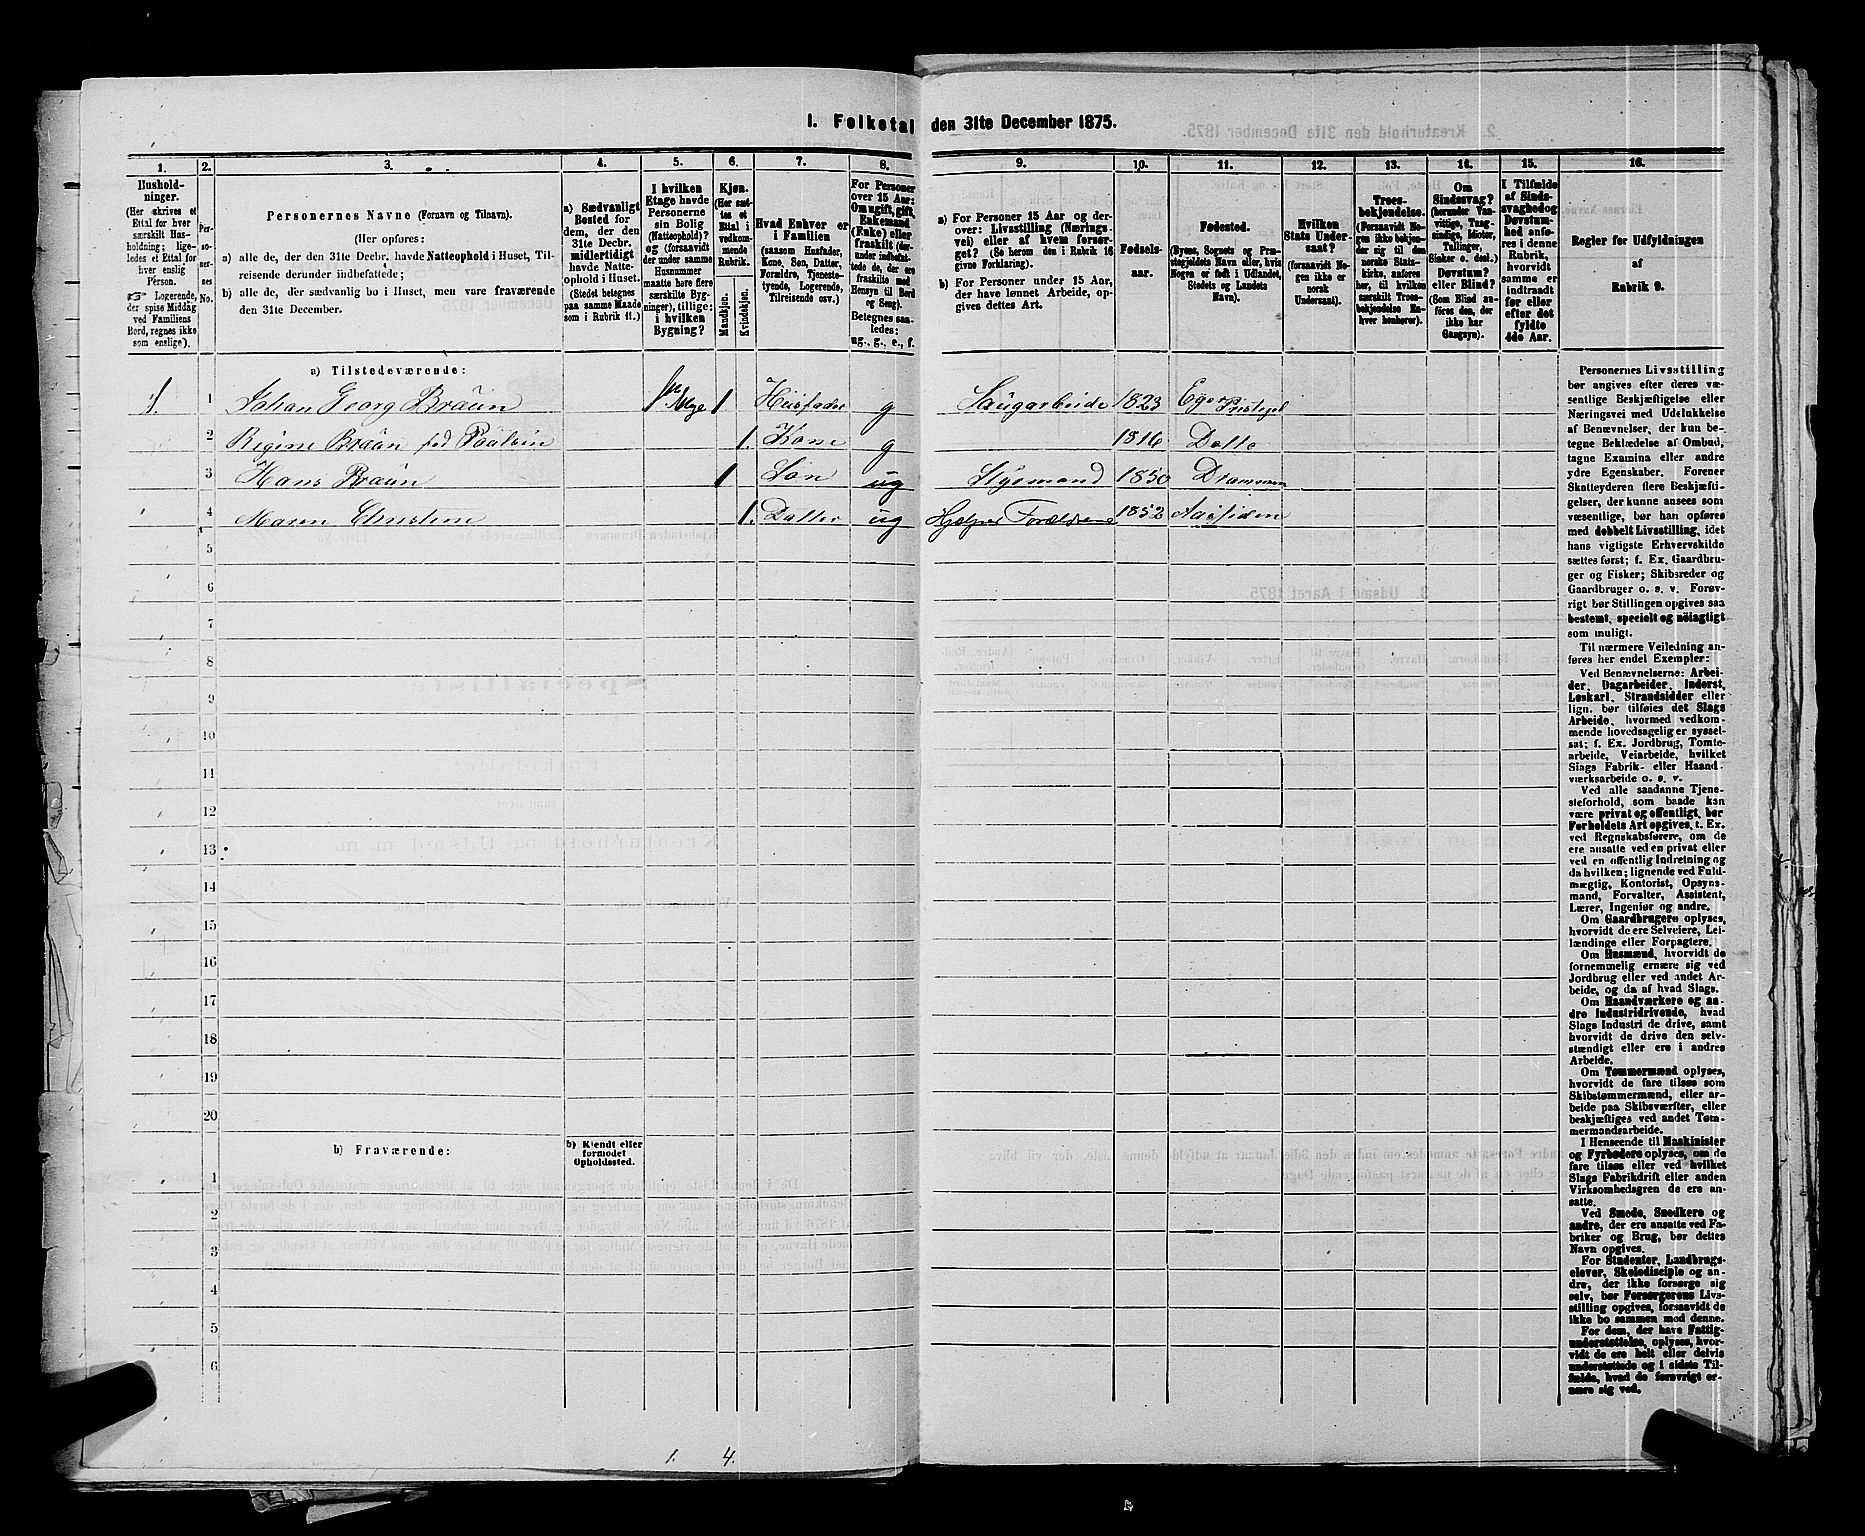 I. Folketal den 31te December 1875.
1. 2. 3. 4. 5. 6. 7. 8. 9. 10. 11. 12. 13. 14. 15. 16.
Hushold-
ninger.
(Her skrives et
Ettal for hver
særskilt Hus-
holdning; lige-
ledes et Ettal for
hver enslig
Person.
☞ Logerende,
der spise Middag
ved Familiens
Bord, regnes ikke
som enslige).
Per-
so-
ner-
nes
No.
Personernes Navne (Fornavn og Tilnavn).
(Her opføres:
a) alle de, der den 31te Decbr. havde Natteophold i Huset, Til-
reisende derunder indbefattede;
b) alle de, der sædvanlig bo i Huset, men vare fraværende
den 31te December.
a) Sædvanligt
Bosted for
dem, der den
31te Decbr.
midlertidigt
havde Natte-
ophold i Huset.
(Stedet betegnes
paa samme Maade
som i Rubrik 11.)
I hvilken
Etage havde
Personerne
sin Bolig
(Natteophold)?
og (forsaavidt
der under samme
Husnummer
maatte høre flere
særskilte Byg-
ninger), tillige:
i hvilken
Bygning?
Kjøn.
(Her sæt-
tes et
Ettal i
vedkom-
mende
Rubrik.
Mandkjøn.
Kvindekjøn.
Hvad Enhver er
i Familien
(saasom Husfader,
Kone, Søn, Datter,
Forældre, Tjeneste-
tyende, Logerende,
Tilreisende osv.)
For Personer
over 15 Aar:
Om ugift, gift,
Enkemand
(Enke) eller
fraskilt (der-
under indbefat-
tede de, der ere
fraskilte med
Hensyn til Bord
og Seng).
Betegnes saa-
ledes:
ug., g., e., f.
a) For Personer 15 Aar og der-
over: Livsstilling (Nærings-
vei) eller af hvem forsør-
get? (Se herom den i Rubrik 16
givne Forklaring).
b) For Personer under 15 Aar,
der have lønnet Arbeide, op-
gives dettes Art.
Fødsels-
aar.
Fødested.
(Byens, Sognets og Præ-
stegjeldets Navn eller, hvis
Nogen er født i Udlandet,
Stedets og Landets
Navn).
Hvilken
Stats Under-
saat?
(forsaavidt No-
gen ikke er
norsk
Undersaat).
Troes-
bekjendelse.
(Forsaavidt No-
gen ikke bekjen-
der sig til den
norske Stats-
kirke, anføres
her, til hvilken
særskilt Troes-
bekjendelse En-
hver henhører).
Om
Sindssvag?
(herunder Van-
vittige, Tung-
sindige, Idioter,
Tullinger,
Sinker o. desl.)
Døvstum?
eller Blind?
(Som Blind an-
føres den, der
ikke har
Gangsyn).
I Tilfælde
af Sinds-
svaghed og
Døvstum-
hed anfø-
res i denne
Rubrik,
hvorvidt
samme er
indtraadt
før eller
efter det
fyldte
4de Aar.
Regler for Udfyldningen
af
Rubrik 9.
a) Tilstedeværende:
1. 1 Johan Georg Braün 1 Husfader g Saugarbeide 1823 Eger Præstegd
2 Regine Braün fød Paülsen 1. Kone g 1816 Dotte
3 Hans Braün 1 Søn ug Styrmand 1850 Drammen
4 Maren Christine 1. Datter ug Hjelper Forældrene 1852 Aassiden
5
6
7
8
9
10
11
12
13
14
15
16
17
18
19
20
b) Fraværende:
b) Kjendt eller
formodet
Opholdssted.
1
2
3
4
5
6
1. 4.
Personernes Livsstilling
bør angives efter deres væ-
sentlige Beskjæftigelse eller
Næringsvei med Udelukkelse
af Benævnelser, der kun be-
tegne Beklædelse af Ombud,
tagne Examina eller andre
ydre Egenskaber. Forener
Skatteyderen flere Beskjæfti-
gelser, der kunne ansees som
væsentlige, bør han opføres
med dobbelt Livsstilling, idet
hans vigtigste Erhvervskilde
sættes først; f. Ex. Gaardbru-
ger og Fisker; Skibsreder og
Gaardbruger o. s. v. Forøv-
rigt bør Stillingen opgives saa
bestemt, specielt og nøiagtigt
som muligt.
Til nærmere Veiledning an-
føres her endel Exempler:
Ved Benævnelserne: Arbei-
der, Dagarbeider, Inderst,
Løskarl, Strandsidder eller
lign. bør tilføies det Slags
Arbeide, hvormed vedkom-
mende hovedsagelig er syssel-
sat; f. Ex. Jordbrug, Tomte-
arbeide, Veiarbeide, hvilket
Slags Fabrik- eller Haand-
værksarbeide o. s. v.
Ved alle saadanne Tjene-
steforhold, som baade kan
være privat og offentligt, bør
Forholdets Art opgives, t. Ex.
ved Regnskabsførere, om de
ere ansatte ved en privat eller
ved en offentlig Indretning og
da hvilken; lignende ved Fuld-
mægtig, Kontorist, Opsyns-
mand, Forvalter, Assistent,
Lærer, Ingeniør og andre.
Om Gaardbrugere oplyses,
hvorvidt de ere Selveiere, Lei-
lændinge eller Forpagtere.
Om Husmænd, hvorvidt de
fornemmelig ernære sig ved
Jordbrug eller ved andet Ar-
beide, og da af hvad Slags.
Om Haandværkere og an-
dre Industridrivende, hvad
Slags Industri de drive, samt
hvorvidt de drive den selv-
stændigt eller ere i andres
Arbeide.
Om Tømmermænd oplyses,
hvorvidt de fare tilsøs som
Skibstømmermænd, eller ar-
beide paa Skibsværfter, eller
beskjæftiges ved andet Tøm-
mermandsarbeide.
I Henseende til Maskinister
og Fyrbødere oplyses, om de
fare tilsøs eller ved hvilket
Slags Fabrikdrift eller anden
Virksomhedsgren de ere an-
satte.
Ved Smede, Snedkere og
andre, der ere ansatte ved Fa-
briker og Brug, bør dettes
Navn opgives.
For Studenter, Landbrugs-
elever, Skoledisciple og an-
dre, der ikke forsørge sig
selv, bør Forsørgerens Livs-
stilling opgives, forsaavidt de
ikke bo sammen med denne.
For dem, der have Fattig-
understøttelse, oplyses, hvor-
vidt de ere helt eller delvis
understøttede og i sidste Til-
fælde, hvad de forøvrigt er-
nære sig ved.